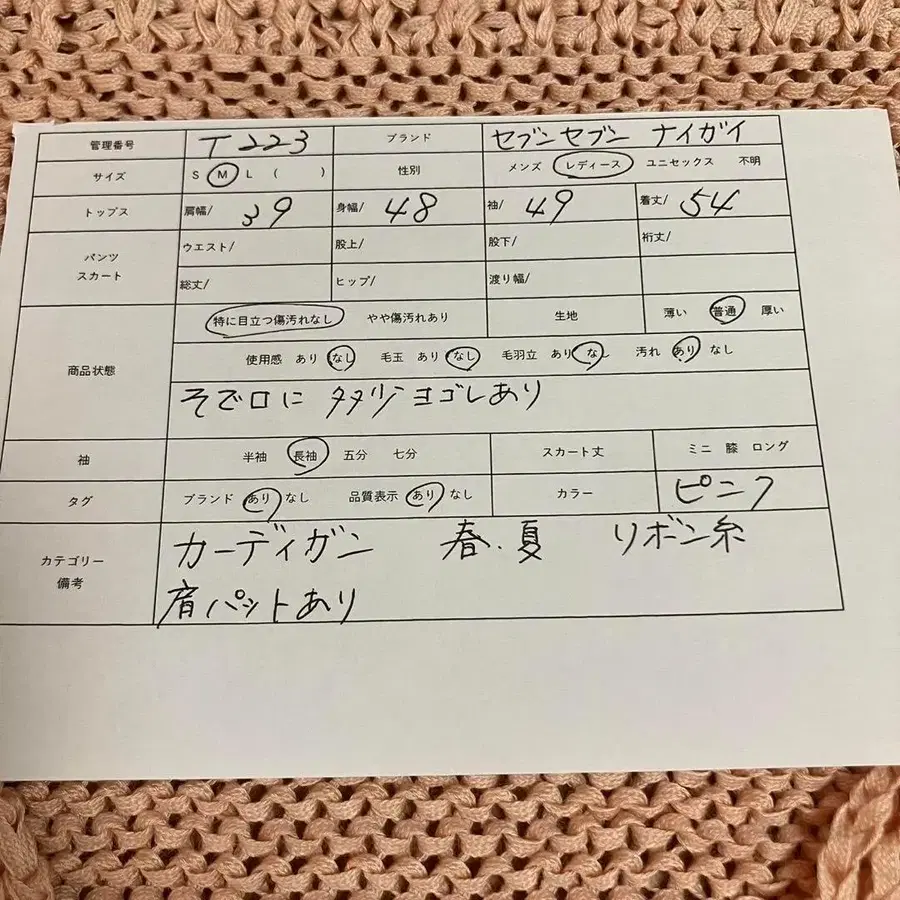 管理番号 T223 ブランド セブンセブン ナイガイ
サイズ S M L ( ) 性別 メンズ レディース ユニセックス 不明
トップス 肩幅/ 39 身幅/ 48 袖/ 49 着丈/ 54
パンツ ウエスト/ 股上/ 股下/ 裄丈/
スカート 総丈/ ヒップ/ 渡り幅/
特に目立つ傷汚れなし やや傷汚れあり 生地 薄い 普通 厚い
商品状態 使用感 あり なし 毛玉 あり なし 毛羽立 あり なし 汚れ あり なし
そで口に ヨゴレあり
袖 半袖 長袖 五分 七分 スカート丈 ミニ 膝 ロング
タグ ブランド あり なし 品質表示 あり なし カラー ピンク
カテゴリー カーディガン 春.夏 リボン糸
備考 肩パットあり